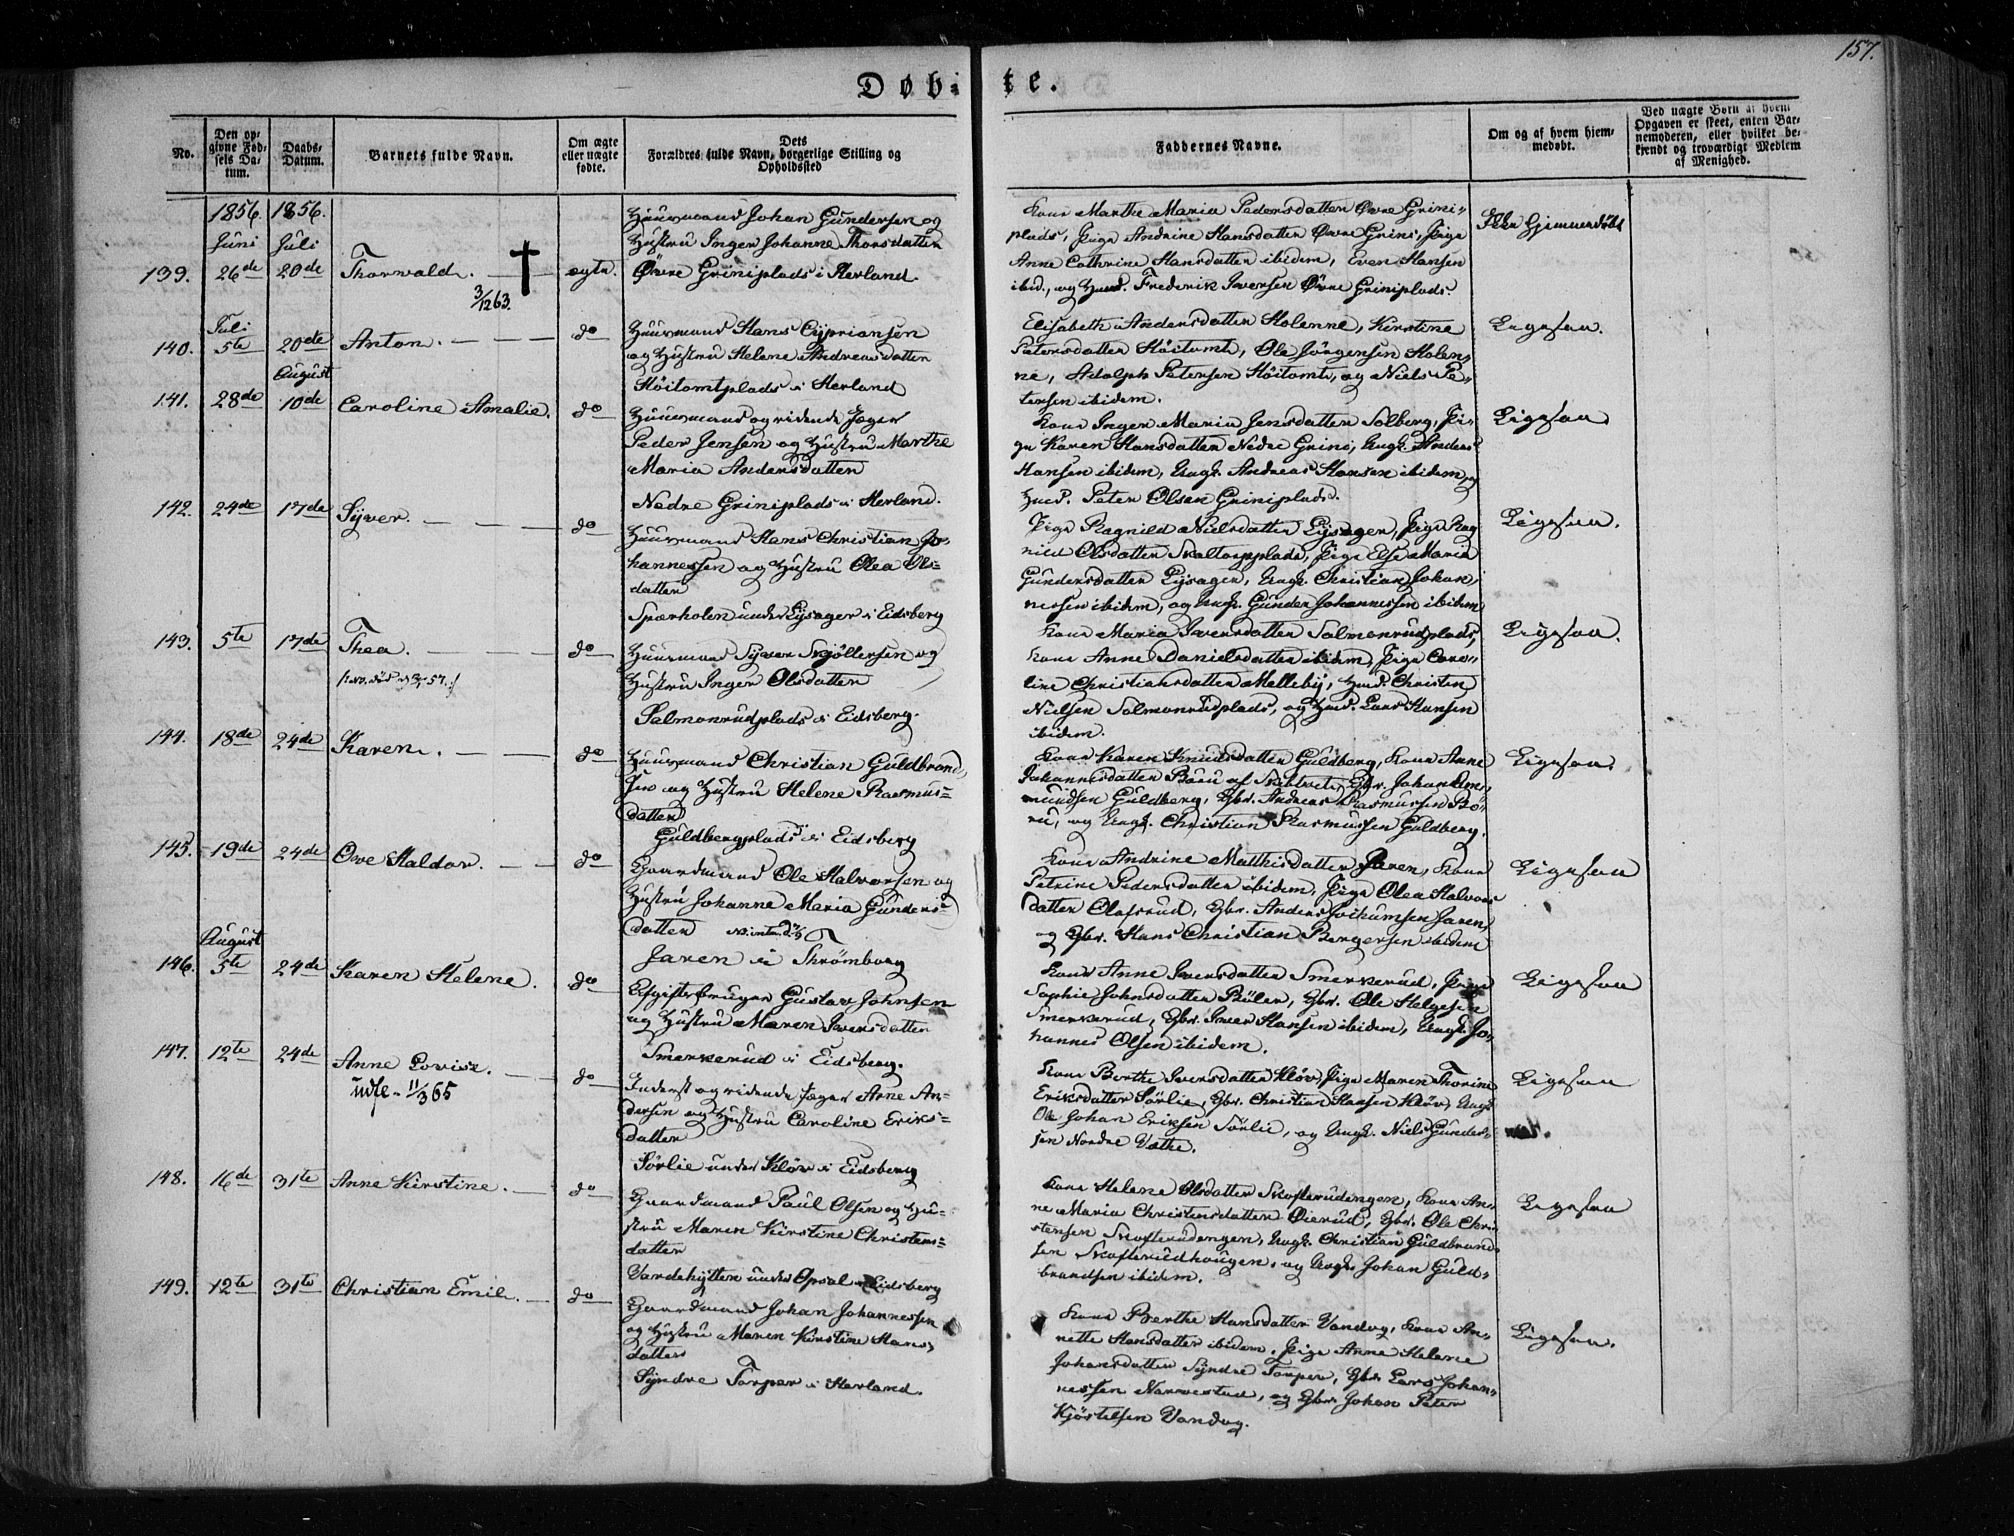 157.
Døb=
te.
No.
Den op=
givne Fød=
sels Da=
tum.
Daabs=
Datum.
Barnets fulde Navn.
Om ægte
eller uægte
fødte.
Dets
Forældres fulde Navn, borgerlige Stilling og
Opholdssted
Faddernes Navne.
Om og af hvem hjem=
medøbt.
Ved uægte Børn af hvem
Opgaven er skeet, enten Bar=
nemoderen, eller hvilket be=
kjendt og troværdigt Medlem
af Menighed.
1856. 1856.
Juni Juli
139. 26de 20de Thorwald. ægte.
3/12 63.
Huusmand Johan Gundersen og
Hustru Inger Johanne Thorsdatter
Øvre Griniplads i Herland.
Kone Marthe Maria Pedersdatter Øvre Grini=
plads, Pige Andrine Hansdatter Øvre Grini, Pige
Anne Cathrine Hansdatter ibidem, Even Hansen
ibid., og Huusm. Frederik Iversen Øvre Griniplads.
Ikke Hjemmedøbt
Juli
140. 5te 20de Anton. do
Huusmand Hans Cypriansen
og Hustru Helene Andreasdatter
Høitomtplads i Herland
Elisabeth Andersdatter Holenne, Kirstine
Petersdatter Høitomt, Ole Jörgensen Holen=
ne, Adolph Petersen Høitomt, og Niels Pe=
tersen ibidem.
Ligesaa.
August
141. 28de 10de Caroline Amalie. do
Huusmand og ridende Jæger
Peder Jensen og Hustru Marthe
Maria Andersdatter
Nedre Griniplads i Herland.
Kone Inger Maria Jensdatter Solberg, Pi=
ge Karen Hansdatter Nedre Grini, Ungk. Anders
Hansen ibidem, Ungk. Andreas Hansen ibidem, og
Huusm. Peter Olsen Griniplads.
Ligesaa
142. 24de 17de Syver. do
Huusmand Hans Christian Jo=
hannessen og Hustru Olea Ols=
datter
Sparholen under Lysager i Eidsberg
Pige Ragnild Nielsdatter Lysager, Pige Rag
nild Olsdatter Skaltorpplads, Pige Else Maria
Gundersdatter Lysager, Ungk. Christian Johan=
nessen ibidem, og Ungk. Gunder Johannessen ibidem
Ligesaa.
143. 5te 17de Thea. do
Huusmand Syver Skjöllersen og
Hustru Inger Olsdatter
Salmonrudplads i Eidsberg.
Kone Maria Iversdatter Salmonrudplads,
Kone Anne Danielsdatter ibidem, Pige Caro=
line Christiansdatter Melleby, Huusm. Christen
Nielsen Salmonrudplads, og Huusm. Lars Hansen
ibidem.
Ligesaa.
144. 18de 24de Karen. do
Huusmand Christian Guldbrand=
sen og Hustru Helene Rasmus=
datter
Guldbergplads i Eidsberg
Kone Karen Knudsdatter Guldberg, Kone Anne
Johannesdatter Röru af Skibtvet, Gbr. Johan Am=
mundsen Guldberg, Gbr. Andreas Rasmussen Rö=
ru, og Ungk. Christian Rasmussen Guldberg.
Ligesaa.
145. 19de 24de Ove Haldor. do
Gaardmand Ole Halvorsen og
Hustru Johanne Maria Gunders=
datter
Jaren i Thrömborg
Kone Andrine Matthisdatter Jaren, Kone
Petrine Pedersdatter ibidem, Pige Olea Halvors
datter Olafsrud, Gbr. Anders Jochumsen Jaren,
og Gbr. Hans Christian Bergersen ibidem
Ligesaa
August
146. 5te 24de Karen Helene. do
Afgiftsbruger Gustav Johnsen
og Hustru Maren Iversdatter
Smerkerud i Eidsberg.
Kone Anne Iversdatter Smerkerud, Pige
Sophie Johnsdatter Böler, Gbr. Ole Helgesen
Smerkerud, Gbr. Iver Hansen ibidem, Ungk. Jo=
hannes Olsen ibidem.
Ligesaa
147. 12te 24de Anne Lovise. do
udfl. 11/3 65
Inderst og ridende Jæger Arne An=
dersen og Hustru Caroline Eriks=
datter
Sörlie under Klöv i Eidsberg
Kone Berthe Iversdatter Klöv, Pige Maren Thorine
Eriksdatter Sörlie, Gbr. Christian Hansen Klöv, Ungk
Ole Johan Eriksen Sörlie, og Ungk. Niels Gunder=
sen Nordre Vathe.
Ligesaa
148. 16de 31te Anne Kirstine. do
Gaardmand Paul Olsen og Hu=
stru Maren Kirstine Christens=
datter
Vardehytten under Opsal i Eidsberg
Kone Helene Olsdatter Skofterudengen, Kone An=
ne Maria Christensdatter Öierud, Gbr. Ole Chri=
stensen Skofterudengen, Ungk. Christian Guldbrand
sen Skofterudhaugen, og Ungk. Johan Guld=
brandsen ibidem.
Ligesaa
149. 12te 31te Christian Emil. do
Gaardmand Johan Johannessen
og Hustru Maren Kirstine Hans=
datter
Syndre Torper i Herland.
Kone Berthe Hansdatter Vandug, Kone An=
nette Hansdatter ibidem, Pige Anne Helene
Johansdatter Syndre Torper, Gbr. Lars Johan=
nessen Narvestad, og Gbr. Johan Peter
Kjöstelsen Vandug.
Ligesaa.